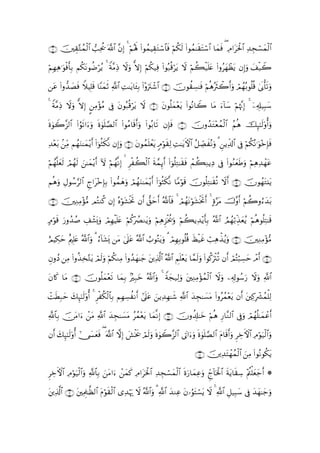 ٱلْمَسْجِدِ ٱلْحَرَامِ ۖ فَمَا ٱسْتَقَٰمُوا۟ لَكُمْ فَٱسْتَقِيمُوا۟ لَهُمْ ۚ إِنَّ ٱللَّهَ يُحِبُّ ٱلْمُتَّقِينَ ۝
كَيْفَ وَإِن يَظْهَرُوا۟ عَلَيْكُمْ لَا يَرْقُبُوا۟ فِيكُمْ إِلًّا وَلَا ذِمَّةً ۚ يُرْضُونَكُم بِأَفْوَٰهِهِمْ
وَتَأْبَىٰ قُلُوبُهُمْ وَأَكْثَرُهُمْ فَٰسِقُونَ ۝ ٱشْتَرَوْا۟ بِـَٔايَٰتِ ٱللَّهِ ثَمَنًا قَلِيلًا فَصَدُّوا۟ عَن
سَبِيلِهِۦٓ ۚ إِنَّهُمْ سَآءَ مَا كَانُوا۟ يَعْمَلُونَ ۝ لَا يَرْقُبُونَ فِى مُؤْمِنٍ إِلًّا وَلَا ذِمَّةً ۚ
وَأُو۟لَٰٓئِكَ هُمُ ٱلْمُعْتَدُونَ ۝ فَإِن تَابُوا۟ وَأَقَامُوا۟ ٱلصَّلَوٰةَ وَءَاتَوُا۟ ٱلزَّكَوٰةَ
فَإِخْوَٰنُكُمْ فِى ٱلدِّينِ ۗ وَنُفَصِّلُ ٱلْءَايَٰتِ لِقَوْمٍ يَعْلَمُونَ ۝ وَإِن نَّكَثُوٓا۟ أَيْمَٰنَهُم مِّنۢ بَعْدِ
عَهْدِهِمْ وَطَعَنُوا۟ فِى دِينِكُمْ فَقَٰتِلُوٓا۟ أَئِمَّةَ ٱلْكُفْرِ ۙ إِنَّهُمْ لَآ أَيْمَٰنَ لَهُمْ لَعَلَّهُمْ
يَنتَهُونَ ۝ أَلَا تُقَٰتِلُونَ قَوْمًا نَّكَثُوٓا۟ أَيْمَٰنَهُمْ وَهَمُّوا۟ بِإِخْرَاجِ ٱلرَّسُولِ وَهُم
بَدَءُوكُمْ أَوَّلَ مَرَّةٍ ۚ أَتَخْشَوْنَهُمْ ۚ فَٱللَّهُ أَحَقُّ أَن تَخْشَوْهُ إِن كُنتُم مُّؤْمِنِينَ ۝
قَٰتِلُوهُمْ يُعَذِّبْهُمُ ٱللَّهُ بِأَيْدِيكُمْ وَيُخْزِهِمْ وَيَنصُرْكُمْ عَلَيْهِمْ وَيَشْفِ صُدُورَ قَوْمٍ
مُّؤْمِنِينَ ۝ وَيُذْهِبْ غَيْظَ قُلُوبِهِمْ ۗ وَيَتُوبُ ٱللَّهُ عَلَىٰ مَن يَشَآءُ ۗ وَٱللَّهُ عَلِيمٌ حَكِيمٌ
۝ أَمْ حَسِبْتُمْ أَن تُتْرَكُوا۟ وَلَمَّا يَعْلَمِ ٱللَّهُ ٱلَّذِينَ جَٰهَدُوا۟ مِنكُمْ وَلَمْ يَتَّخِذُوا۟ مِن دُونِ
ٱللَّهِ وَلَا رَسُولِهِۦ وَلَا ٱلْمُؤْمِنِينَ وَلِيجَةً ۚ وَٱللَّهُ خَبِيرٌۢ بِمَا تَعْمَلُونَ ۝ مَا كَانَ
لِلْمُشْرِكِينَ أَن يَعْمُرُوا۟ مَسَٰجِدَ ٱللَّهِ شَٰهِدِينَ عَلَىٰٓ أَنفُسِهِم بِٱلْكُفْرِ ۚ أُو۟لَٰٓئِكَ حَبِطَتْ
أَعْمَٰلُهُمْ وَفِى ٱلنَّارِ هُمْ خَٰلِدُونَ ۝ إِنَّمَا يَعْمُرُ مَسَٰجِدَ ٱللَّهِ مَنْ ءَامَنَ بِٱللَّهِ
وَٱلْيَوْمِ ٱلْءَاخِرِ وَأَقَامَ ٱلصَّلَوٰةَ وَءَاتَى ٱلزَّكَوٰةَ وَلَمْ يَخْشَ إِلَّا ٱللَّهَ ۖ فَعَسَىٰٓ أُو۟لَٰٓئِكَ أَن
يَكُونُوا۟ مِنَ ٱلْمُهْتَدِينَ ۝
۞ أَجَعَلْتُمْ سِقَايَةَ ٱلْحَآجِّ وَعِمَارَةَ ٱلْمَسْجِدِ ٱلْحَرَامِ كَمَنْ ءَامَنَ بِٱللَّهِ وَٱلْيَوْمِ ٱلْءَاخِرِ
وَجَٰهَدَ فِى سَبِيلِ ٱللَّهِ ۚ لَا يَسْتَوُۥنَ عِندَ ٱللَّهِ ۗ وَٱللَّهُ لَا يَهْدِى ٱلْقَوْمَ ٱلظَّٰلِمِينَ ۝ ٱلَّذِينَ